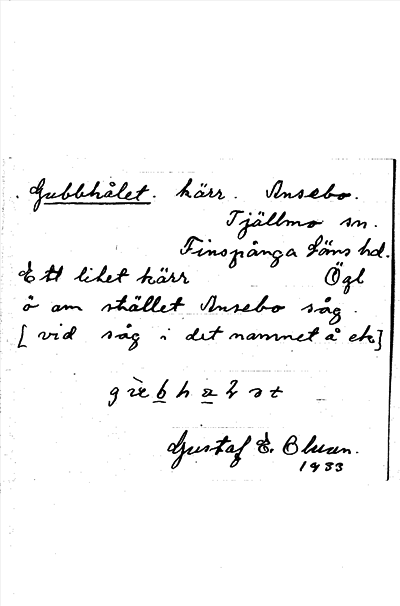 Gubbhålet. kärr. Ansebo.
Tjällmo sn.
Finspånga läns hd.
Ett litet kärr Ögl
ö om stället Ansebo såg.
[vid såg i det namnet å ek.]
Gustaf E. Bluun.
1933